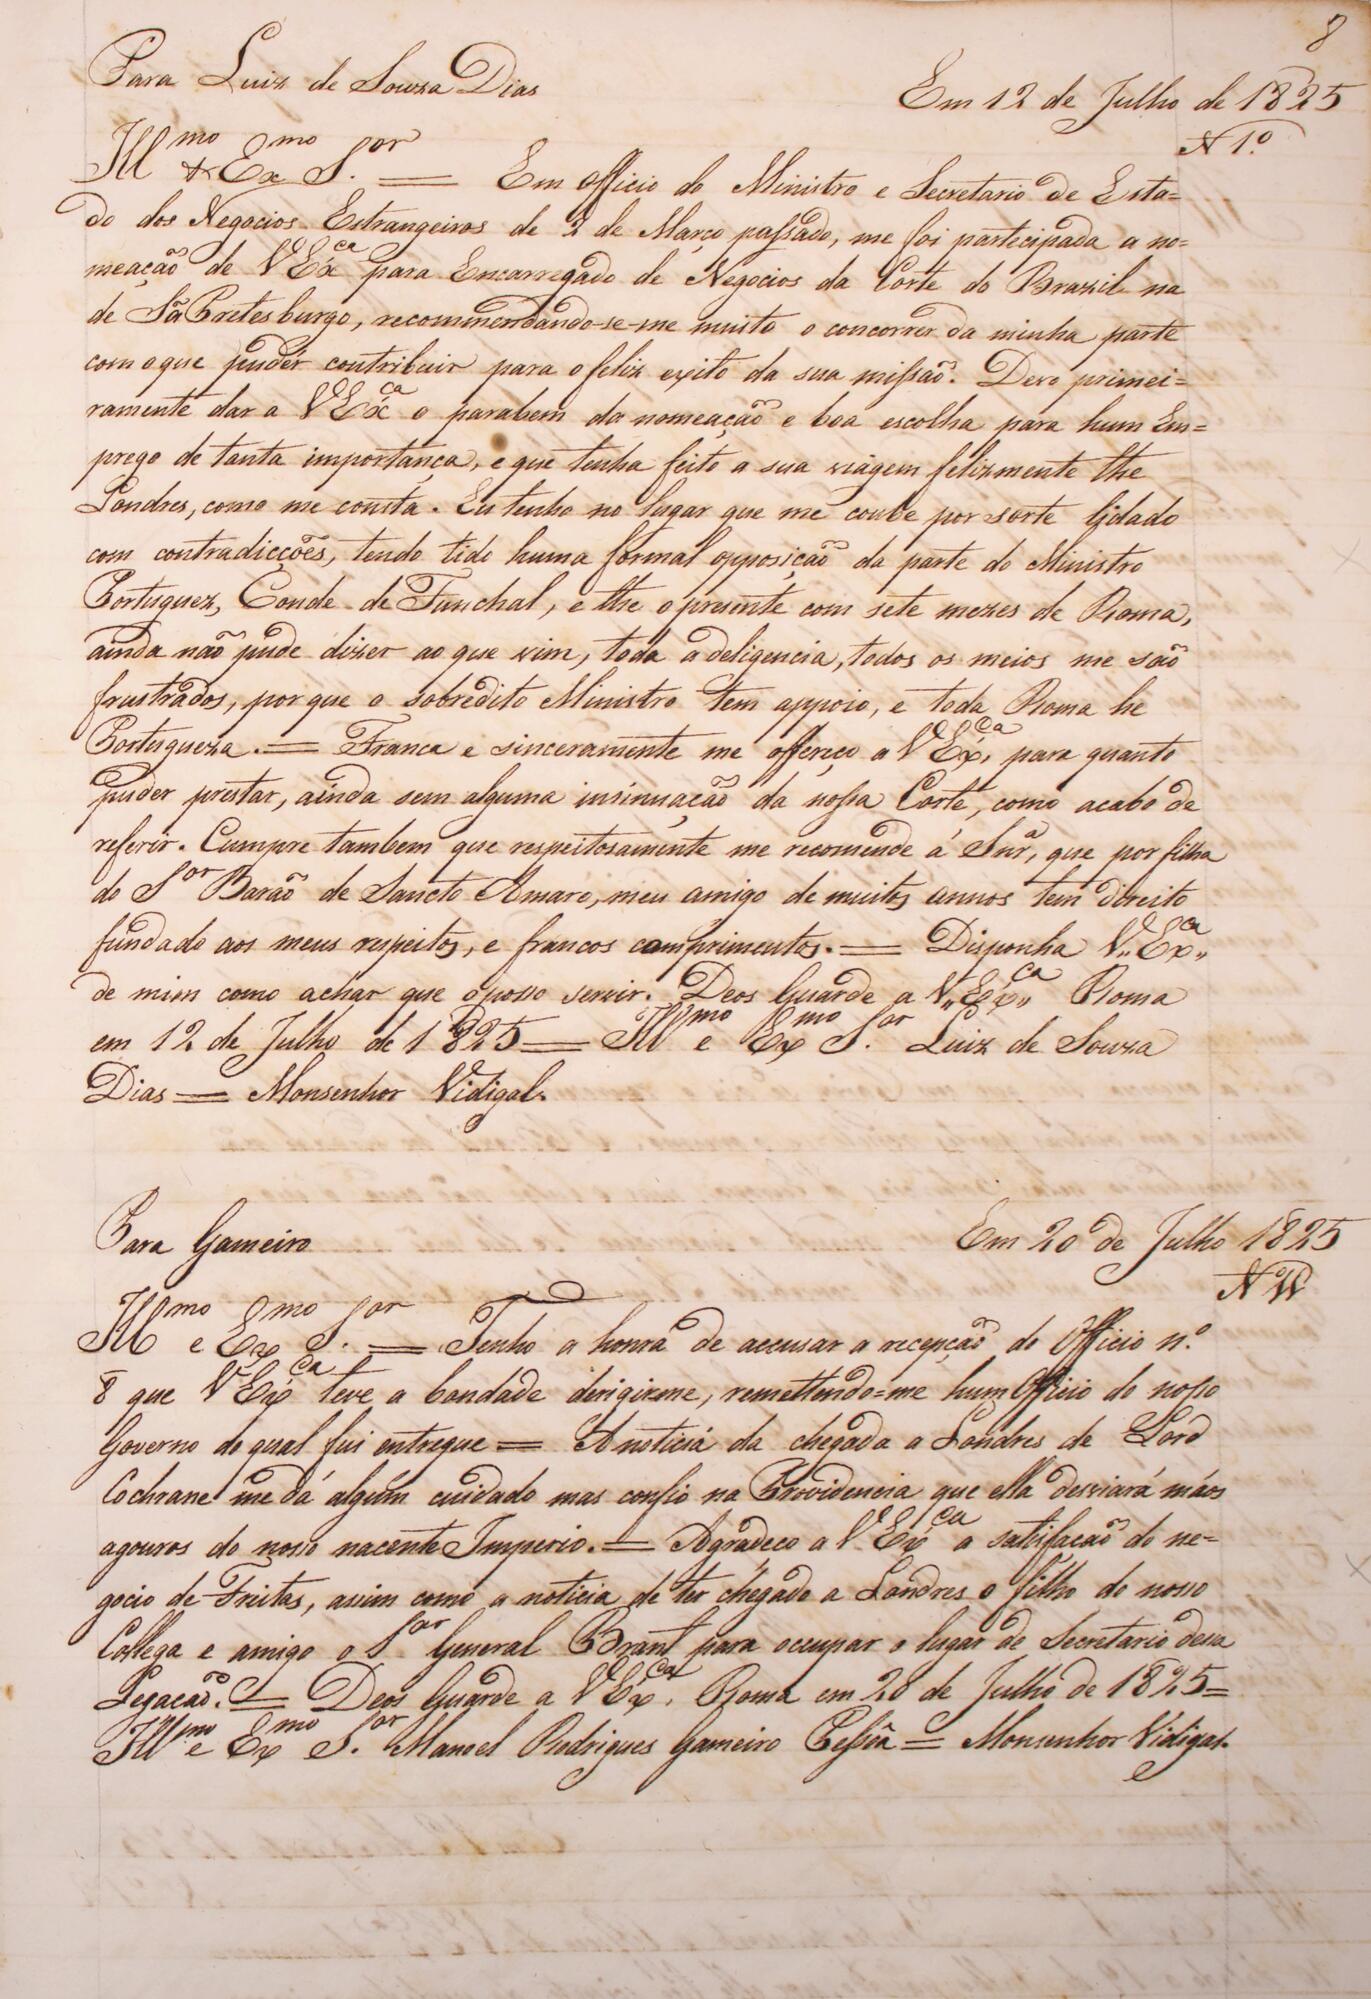 8
Para Luiz de Souza Dias
Em 12 de Julho de 1825
N 1.º
Ill.mo & Ex.mo S.or = Em officio do Ministro e Secretario de Esta=
do dos Negocios Estrangeiros de 2 de Março passado, me foi partecipada a no=
meação de V Ex.ca para Encarregado de Negocios da Corte do Brazil na
de Sã Pretesburgo, recommendando-se-me muito o concorrer da minha parte
com o que puder contribuir para o feliz exito da sua missão. Devo primei=
ramente dar a V Ex.ca o parabem da nomeação e boa escolha para hum Em=
prego de tanta importança, e que tenha feito a sua viagem felizmente the
Londres, como me consta. Eu tenho no lugar que me coube por sorte lidado
com contradicções, tendo tido huma formal opposição da parte do Ministro
Portuguez, Conde de Funchal, e the o presente com sete mezes de Roma,
ainda não pude dizer ao que vim, toda a deligencia, todos os meios me são
frustrados, por que o sobredito Ministro tem appoio, e toda Roma he
Portugueza. = Franca e sinceramente me offereço a V Ex.ca, para quanto
puder prestar, ainda sem alguma insinuação da nossa Corte, como acabo de
referir. Cumpre tambem que respeitosamente me recomende á Snr̃, que por filha
do S.or Barão de Sancto Amaro, meu amigo de muitos annos tem direito
fundado aos meus respeitos, e francos comprimentos. = Disponha V,, Ex.ca,,
de mim como achar que o posso servir. Deos Guarde a V,, Ex.ca,, Roma
em 12 de Julho de 1825 = Ill.mo e Ex.mo S.or Luiz de Souza
Dias = Monsenhor Vidigal.
Para Gameiro
Em 20 de Julho 1825
N
Ill.mo e Ex.mo S.or = Tenho a honra de accusar a recepção do Officio n.º
8 que V Ex.ca teve a bondade dirigirme, remettendo=me hum Officio do nosso
Governo do qual fui entregue = A noticia da chegada a Londres de Lord
Cochrane me dá algum cuidado mas confio na Providencia que ella desviará máos
agouros do nosso nacente Imperio. = Agradeço a V Ex.ca a satisfacão do ne=
gocio de Freitas, assim como a noticia de ter chegado a Londres o filho do nosso
Collega e amigo o S.or General Brant para occupar o lugar de Secretario desa
Legacão. = Deos Guarde a V Ex.ca. Roma em 20 de Julho de 1825=
Ill.mo e Ex.mo S.or Manoel Rodrigues Gameiro Pessõa = Monsenhor Vidigal.